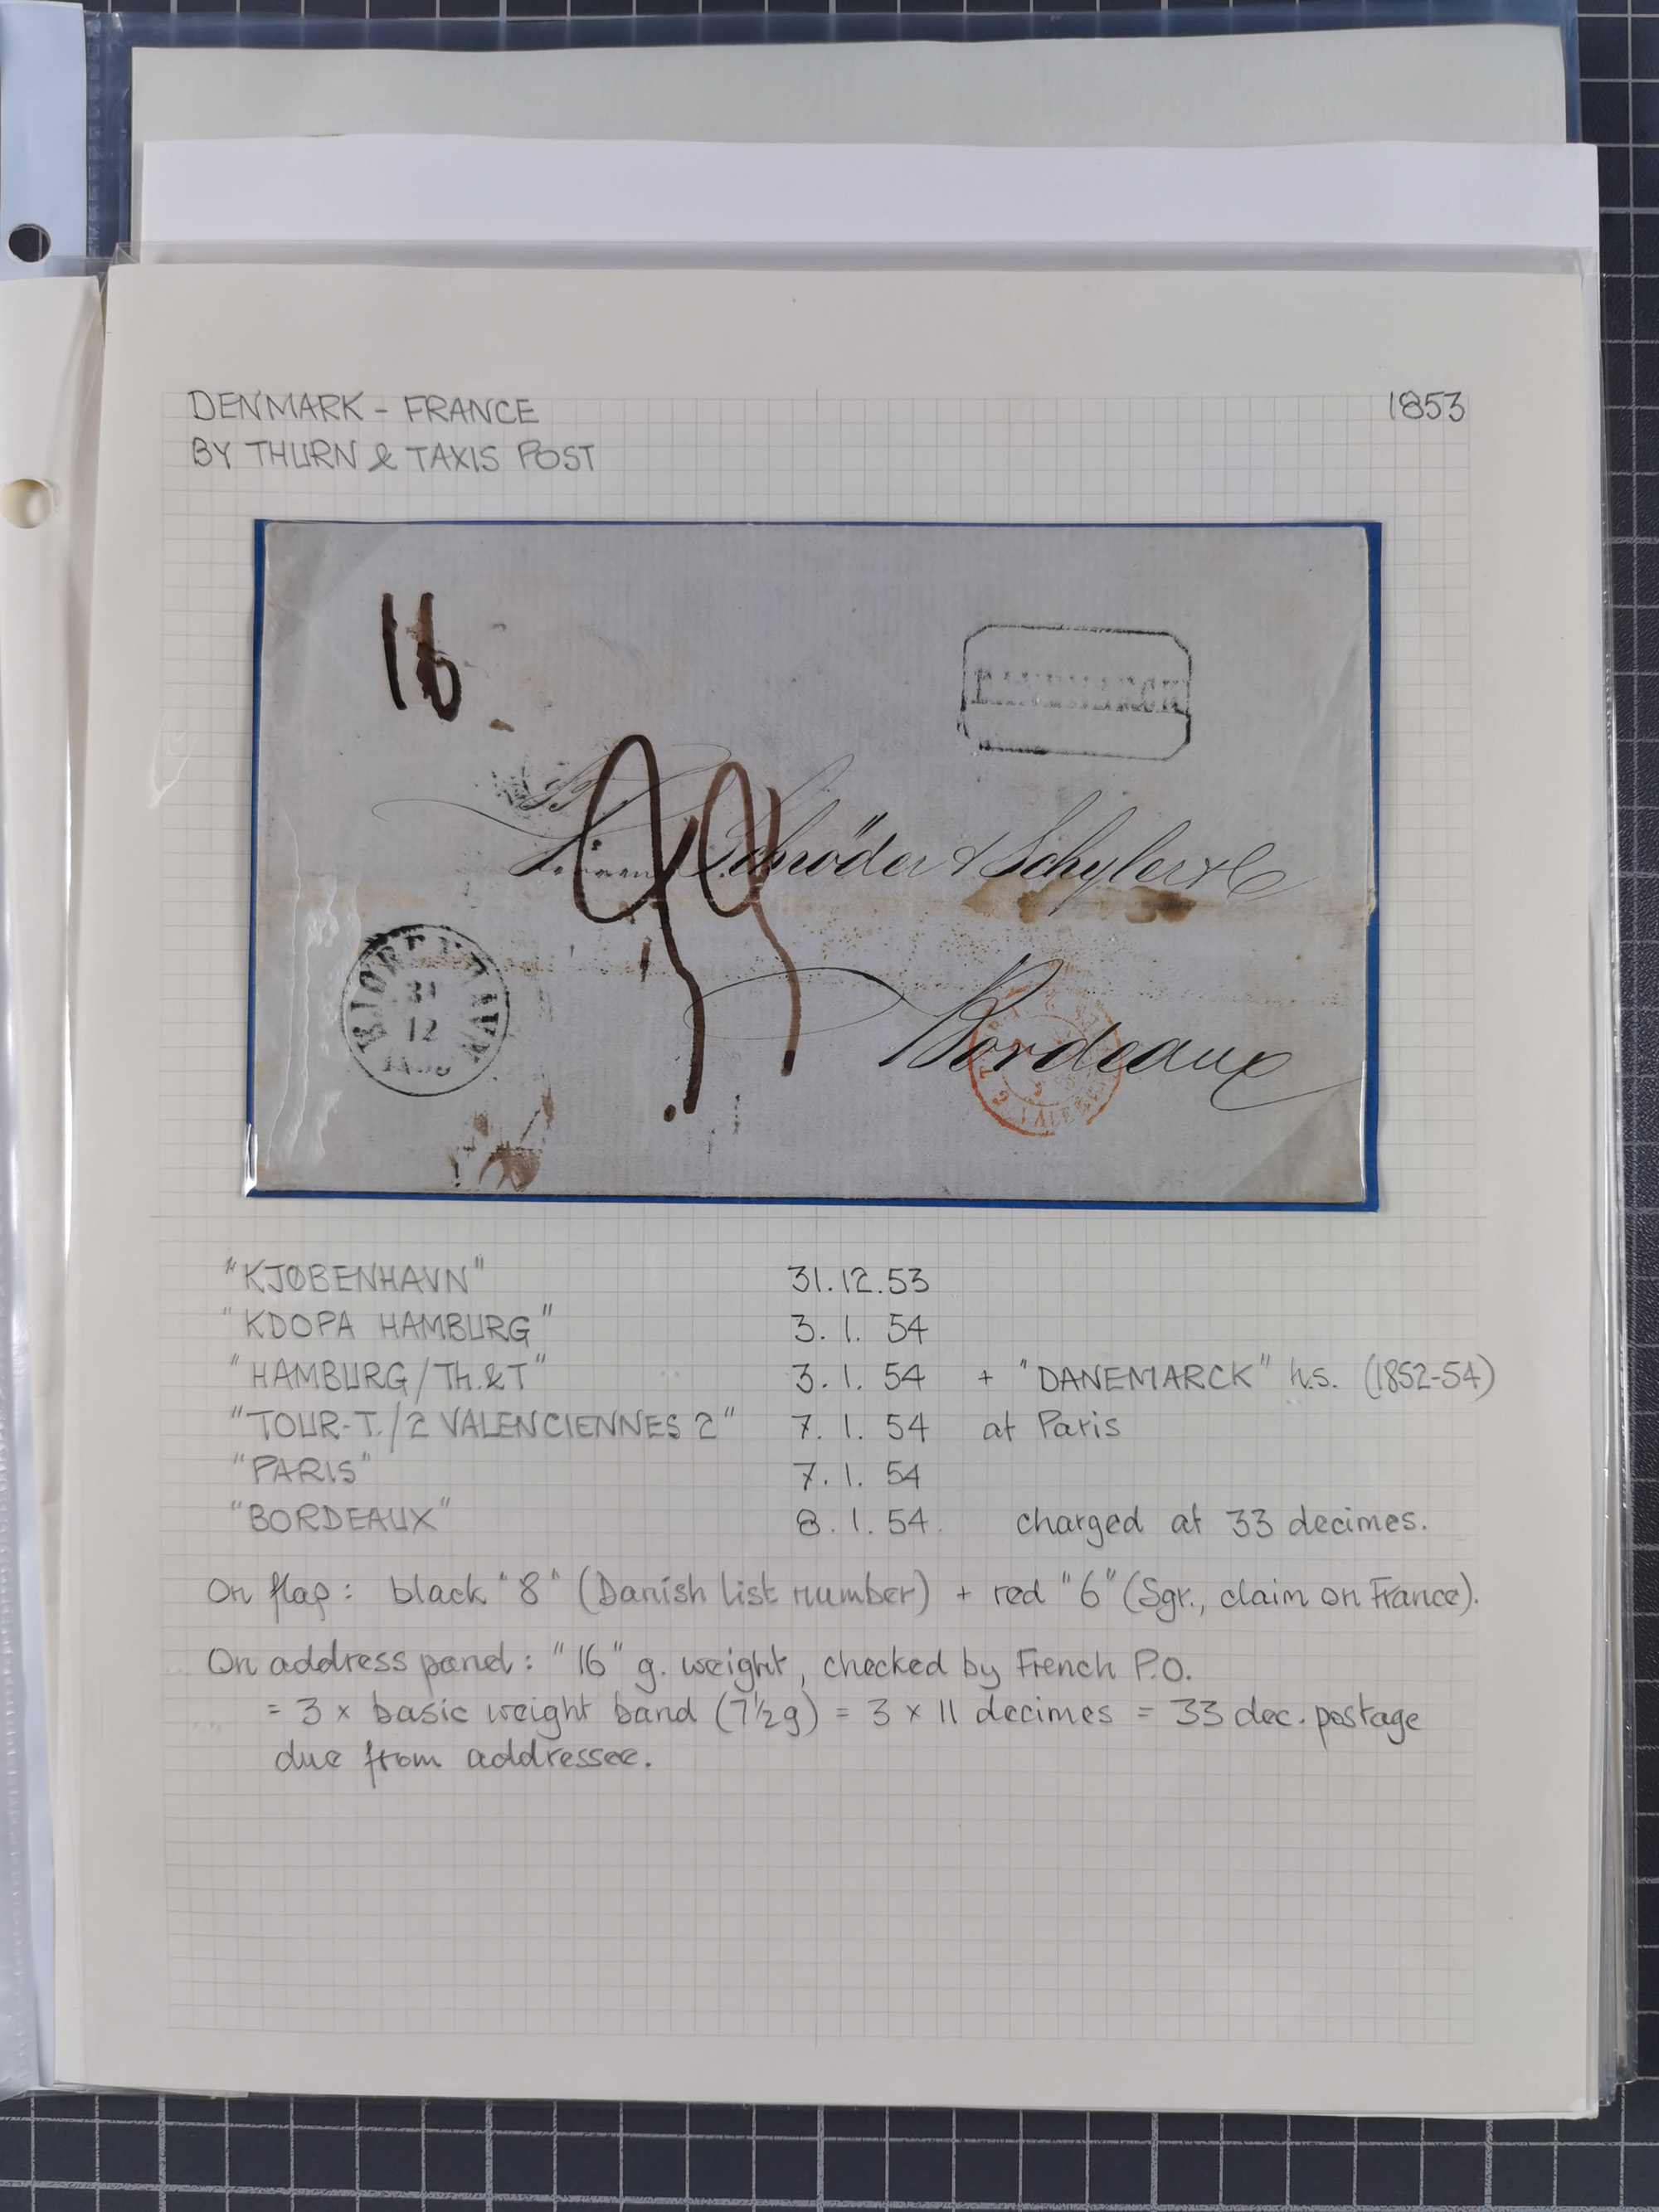 DENMARK - FRANCE 1853
BY THURN & TAXIS POST
16
DANEMARCK
33
Schröder & Schyler & Co
KJØBENHAVN
31
12
Bordeaux
"KJØBENHAVN" 31.12.53
"KDOPA HAMBURG" 3. 1. 54
"HAMBURG/Th.&T" 3. 1. 54 + "DANEMARCK" h.s. (1852-54)
"TOUR-T./2 VALENCIENNES 2" 7. 1. 54 at Paris
"PARIS" 7. 1. 54
"BORDEAUX" 8. 1. 54. charged at 33 decimes.
On flap: black "8" (Danish list number) + red "6" (Sgr., claim on France).
On address panel: "16" g. weight, checked by French P.O.
= 3 x basic weight band (7½g) = 3 x 11 decimes = 33 dec. postage
due from addressee.